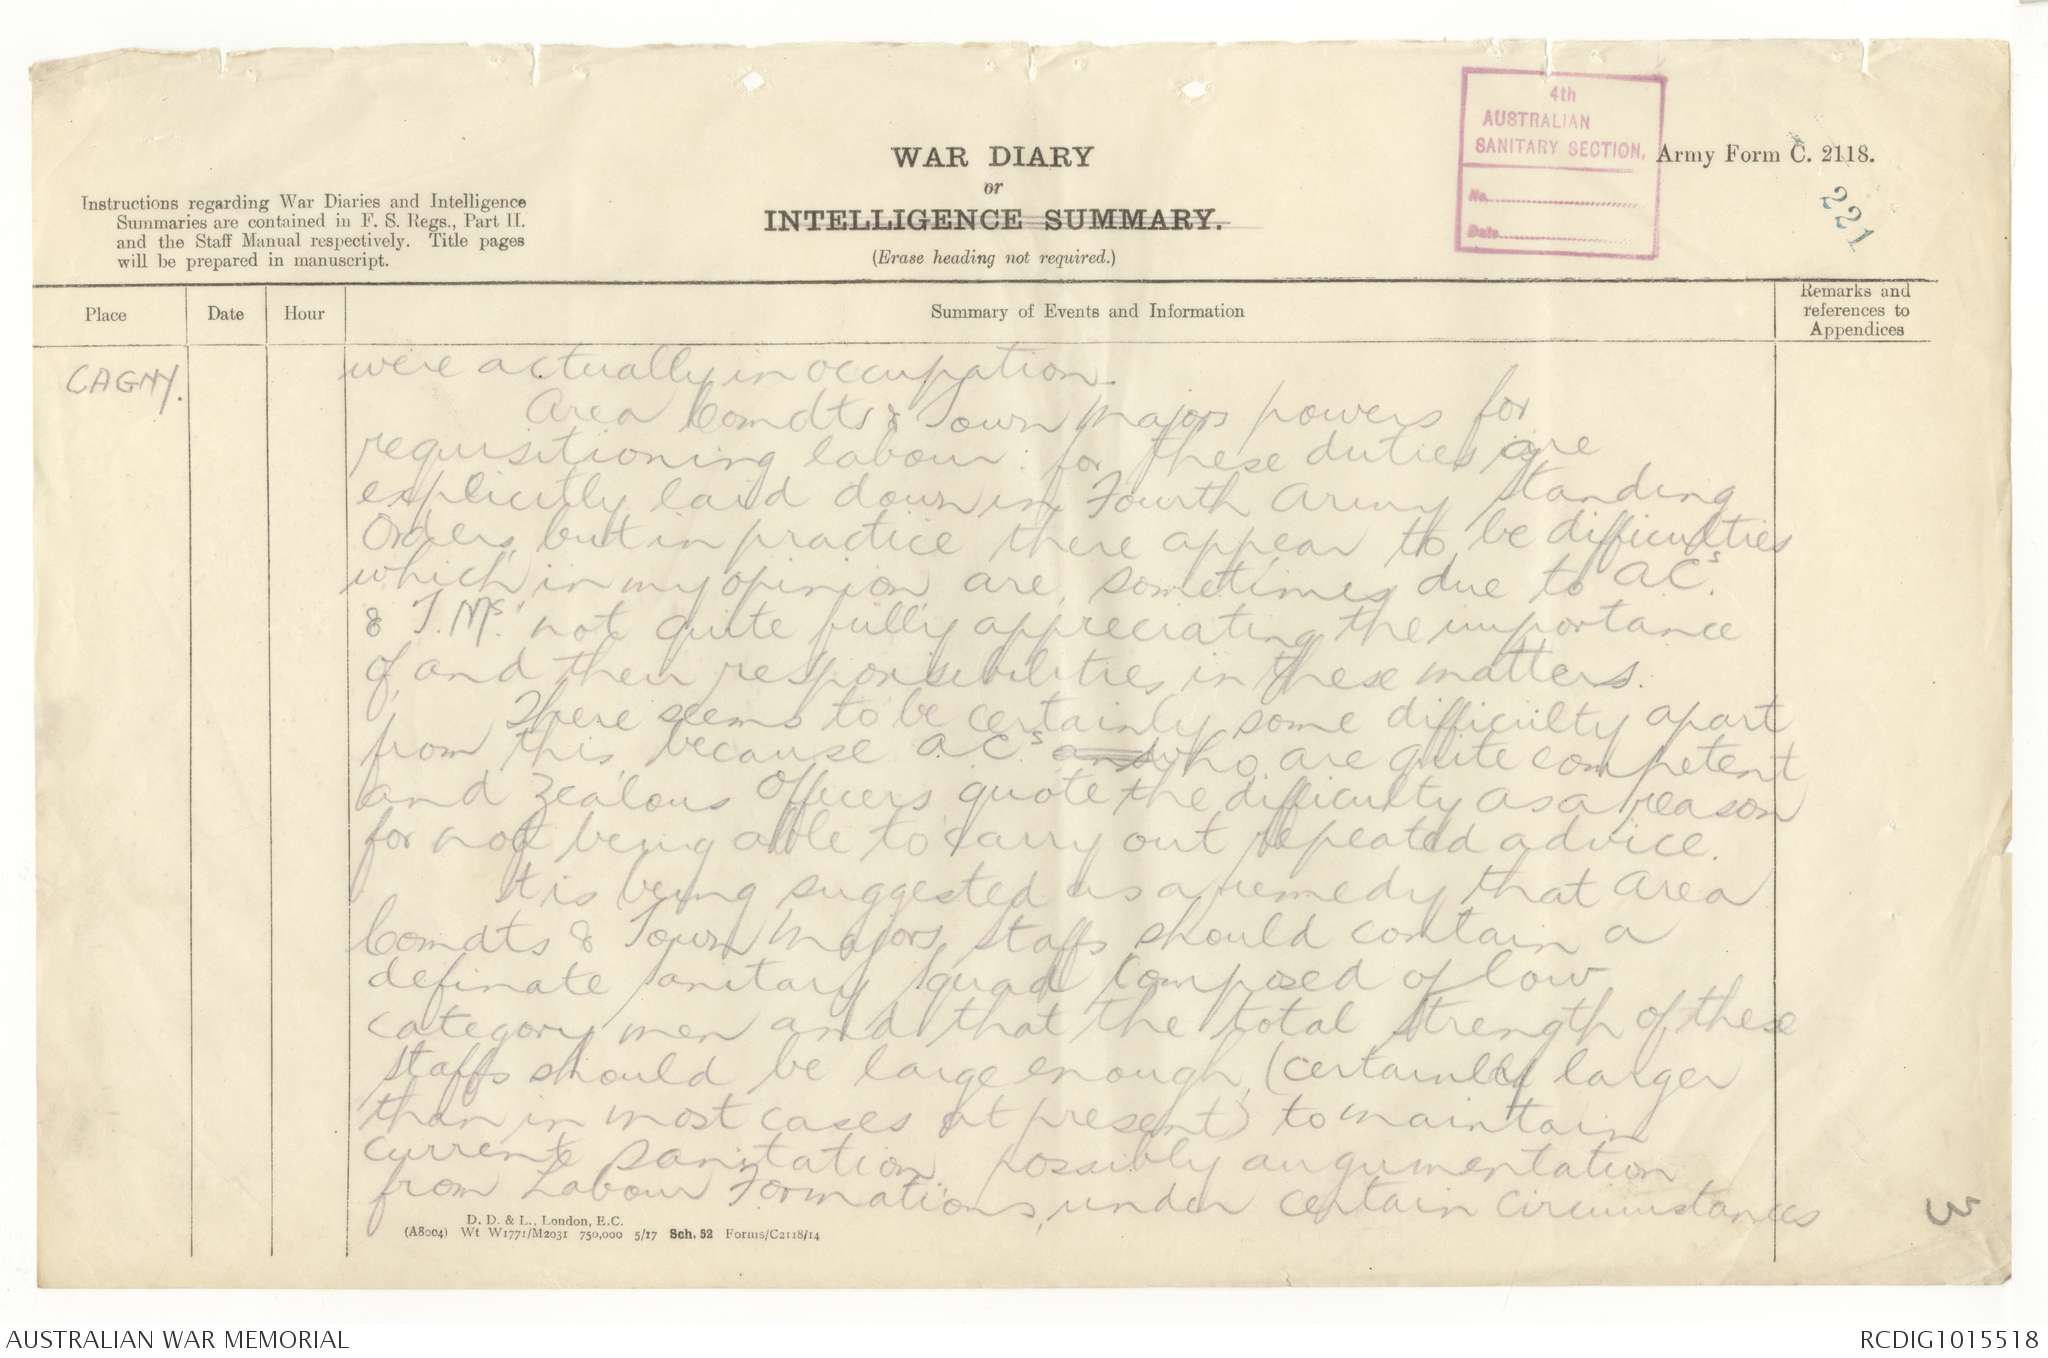 4th
AUSTRALIAN
SANITARY SECTION.
No.
Date
Army Form C. 2118.
221
WAR DIARY
or
INTELLIGENCE SUMMARY.
(Erase heading not required.)
Instructions regarding War Diaries and Intelligence
Summaries are contained in F. S. Regs., Part II.
and the Staff Manual respectively. Title pages
will be prepared in manuscript.
Place
Date
Hour
Summary of Events and Information
Remarks and
references to
Appendices
CAGNY.
were actually in occupation.
Area Comdts & Town Majors powers for
requisitioning labour for these duties are
explicitly laid down in Fourth Army Standing
Orders, but in practice there appear to be difficulties
which in my opinion are sometimes due to A.Cs.
& T.Ms. not quite fully appreciating the importance
of and their responsibilities in these matters.
There seems to be certainly some difficulty apart
from this because A.Cs who are quite competent
and zealous Officers quote the difficulty as a reason
for not being able to carry out repeated advice.
It is being suggested as a remedy that Area
Comdts & Town Majors staffs should contain a
definate sanitary squad composed of low
category men and that the total strength of these
staffs should be large enough (certainly larger
than in most cases at present) to maintain
current sanitation, possibly augumentation
from Labour Formations, under certain circumstances
D. D. & L., London, E.C.
(A8004) Wt W1771/M2031 750,000 5/17 Sch. 52 Forms/C2118/14
3
AUSTRALIAN WAR MEMORIAL
RCDIG1015518